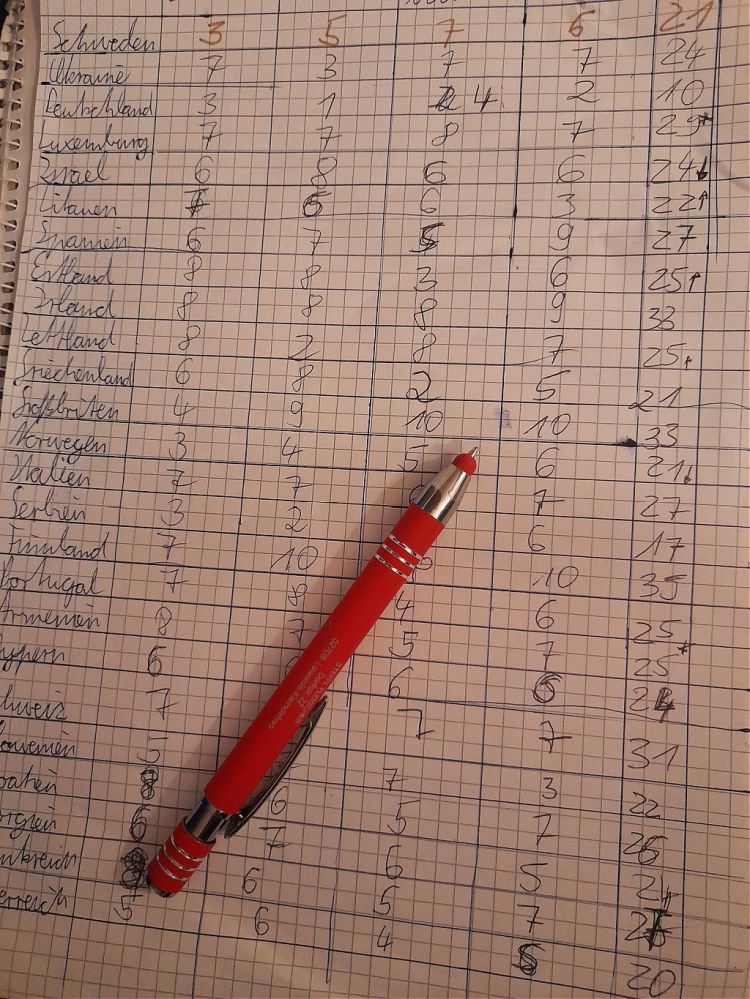 Schweden 3 5 7 6 21
Ukraine 7 3 7 7 24
Deutschland 3 1 4 2 10
Luxemburg 7 7 8 7 29*
Israel 6 8 6 6 24↓
Litauen 7 6 6 3 22↑
Spanien 6 7 5 9 27
Estland 8 8 3 6 25↑
Irland 8 8 8 9 33
Lettland 8 2 8 7 25↑
Griechenland 6 8 2 5 21
Großbriten 4 9 10 10 33
Norwegen 3 4 5 6 21↓
Italien 7 7 7 27
Serbien 3 2 6 17
Finnland 7 10 8 10 35
Portugal 7 8 4 6 25
Armenien 8 7 5 7 25*
ypern 6 6 6 24
chweiz 7 7 7 31
owenien 5 7 3 22
oatien 8 6 5 7 26
orgien 6 7 6 5 24
nkreich 8 6 5 7
erreich 5 6 4 5 20